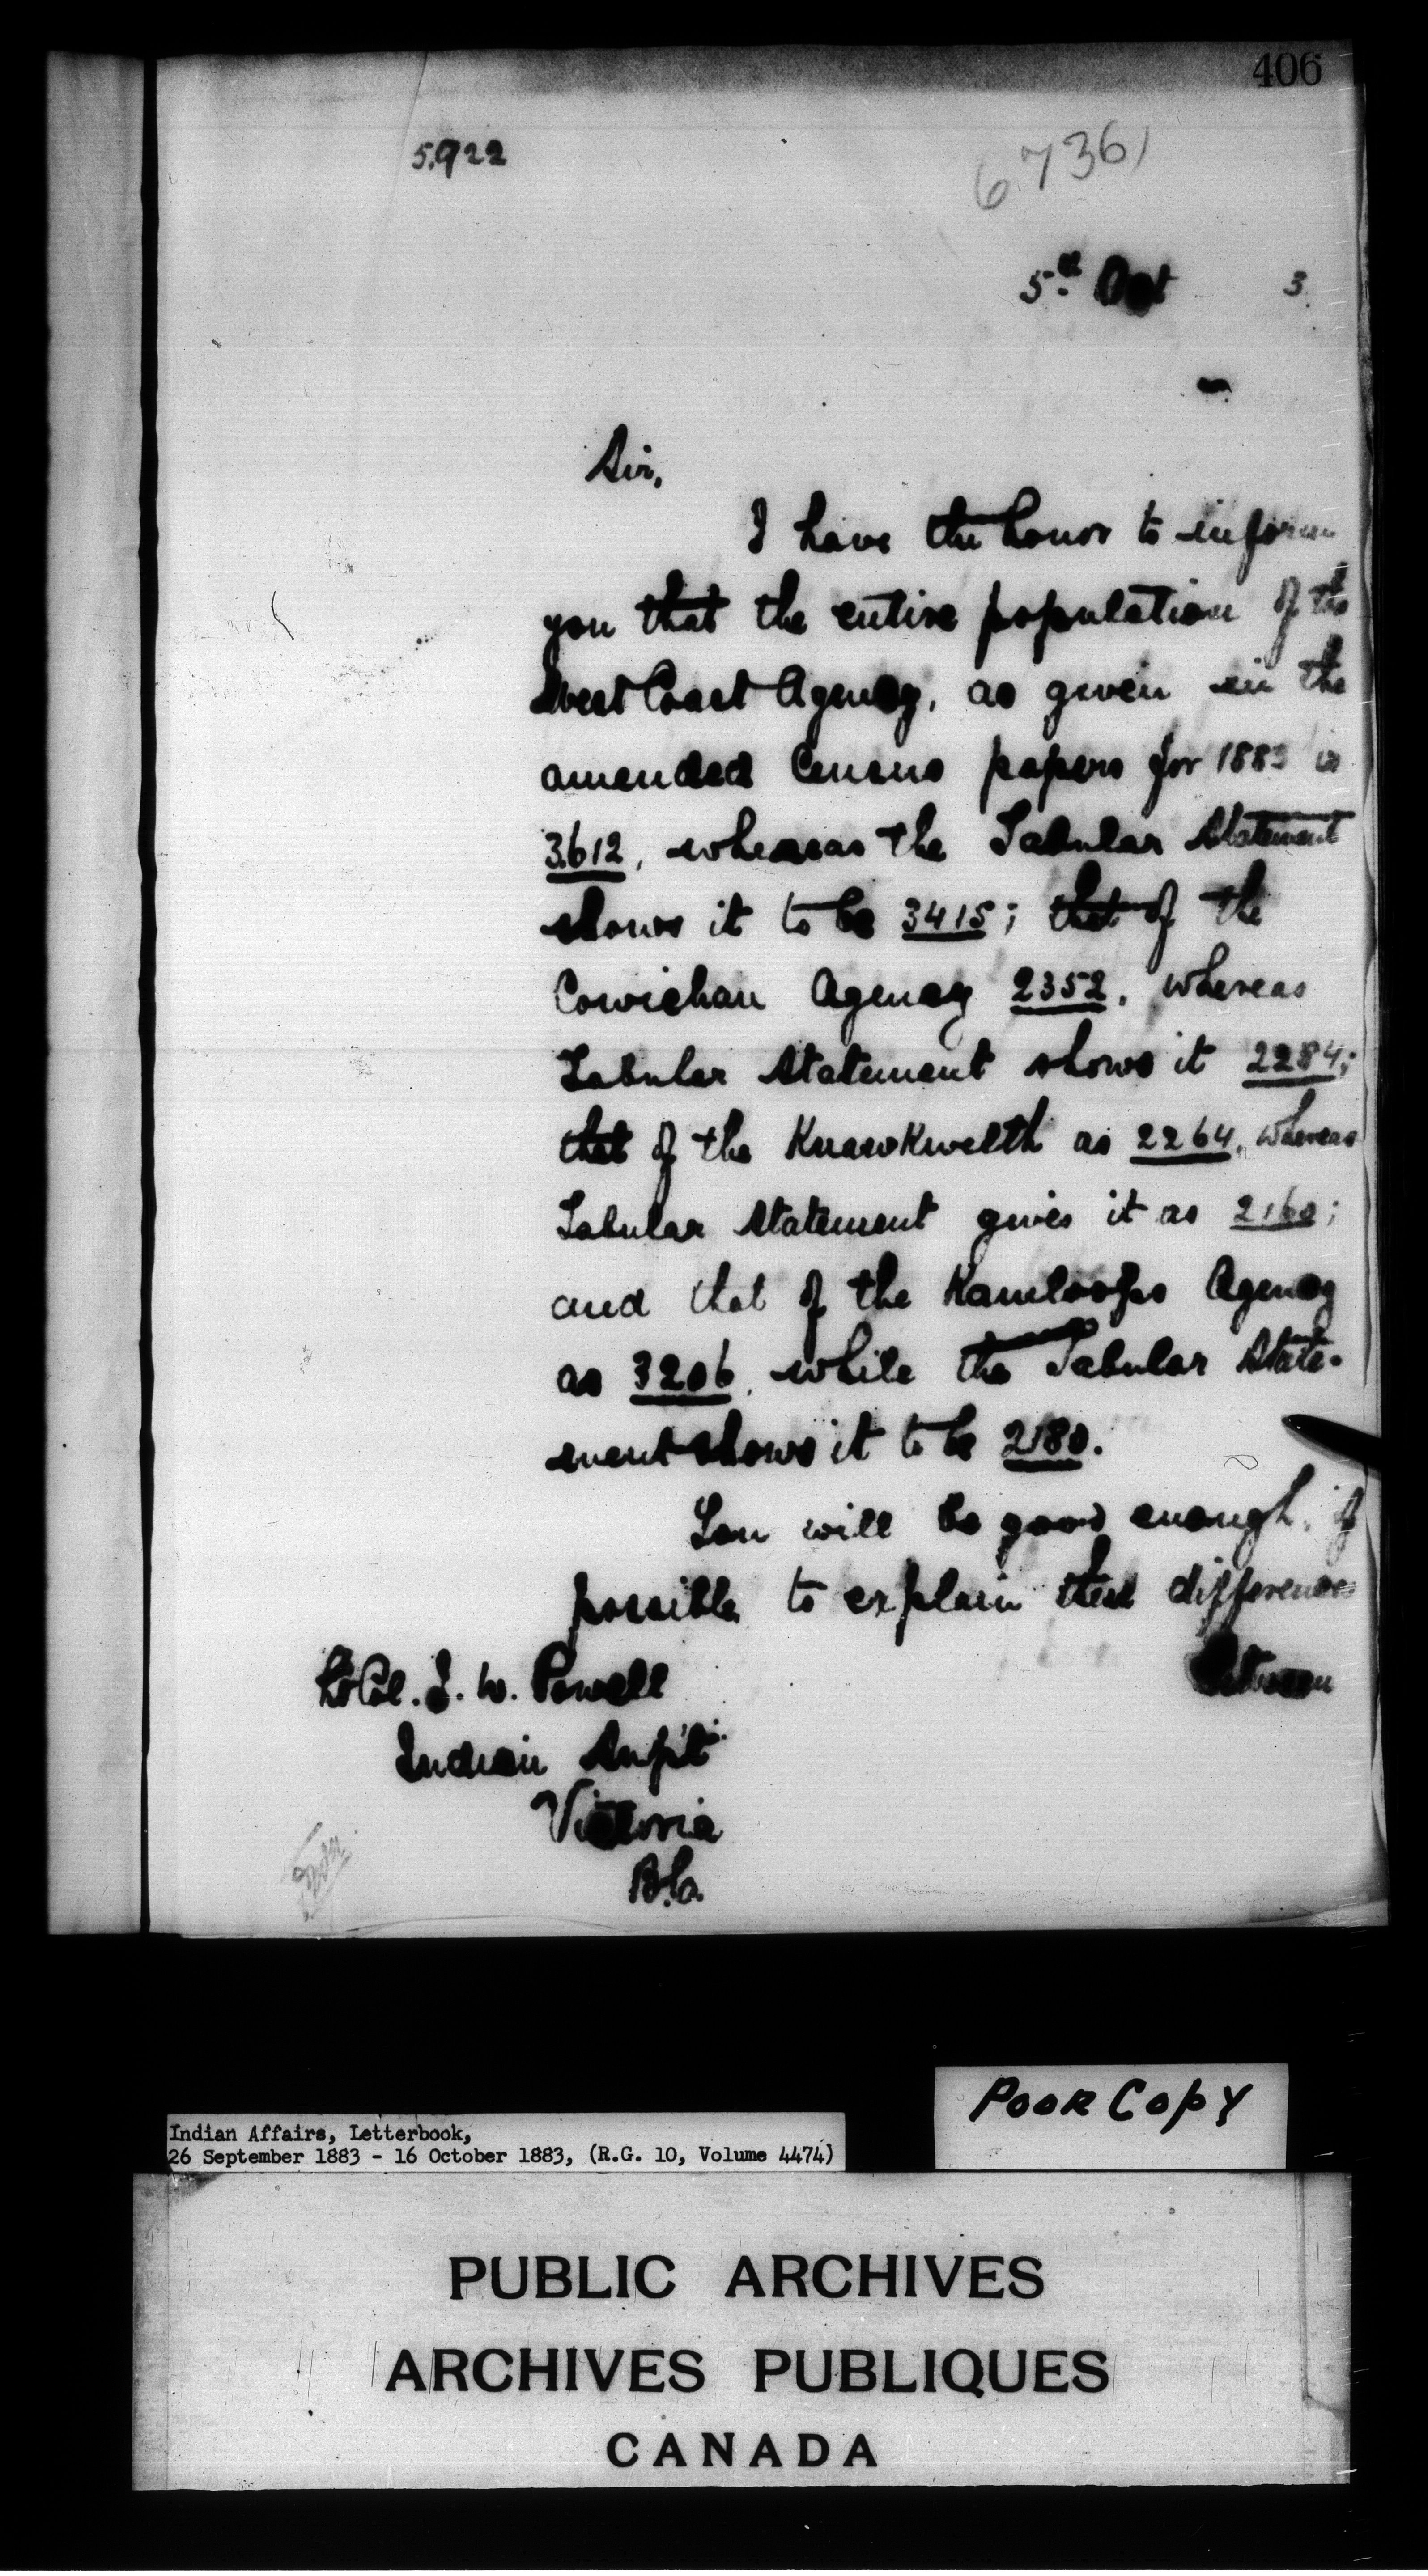 406
5,922
6,736
5th Oct 3
Sir,
I have the honor to inform
you that the entire population of the
West Coast Agency, as given in the
amended Census papers for 1883 is
3612, whereas the Tabular Statement
shows it to be 3415; that of the
Cowichan Agency 2352, whereas
Tabular Statement shows it 2284;
that of the KwawKwelth as 2264, whereas
Tabular Statement gives it as 2160;
and that of the Kamloops Agency
as 3206, while the Tabular State-
ment shows it to be 2180.
You will be good enough, if
possible, to explain these differences
between
Lt Col. I. W. Powell
Indian Supt
Victoria
B.C.
POOR COPY
Indian Affairs, Letterbook,
26 September 1883 - 16 October 1883, (R.G. 10, Volume 4474)
PUBLIC ARCHIVES
ARCHIVES PUBLIQUES
CANADA